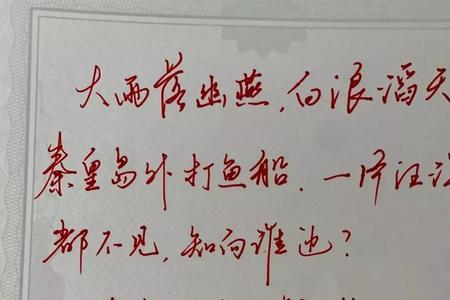 大雨落幽燕，白浪滔天
秦皇岛外打鱼船。一片汪洋
都不见，知向谁边？